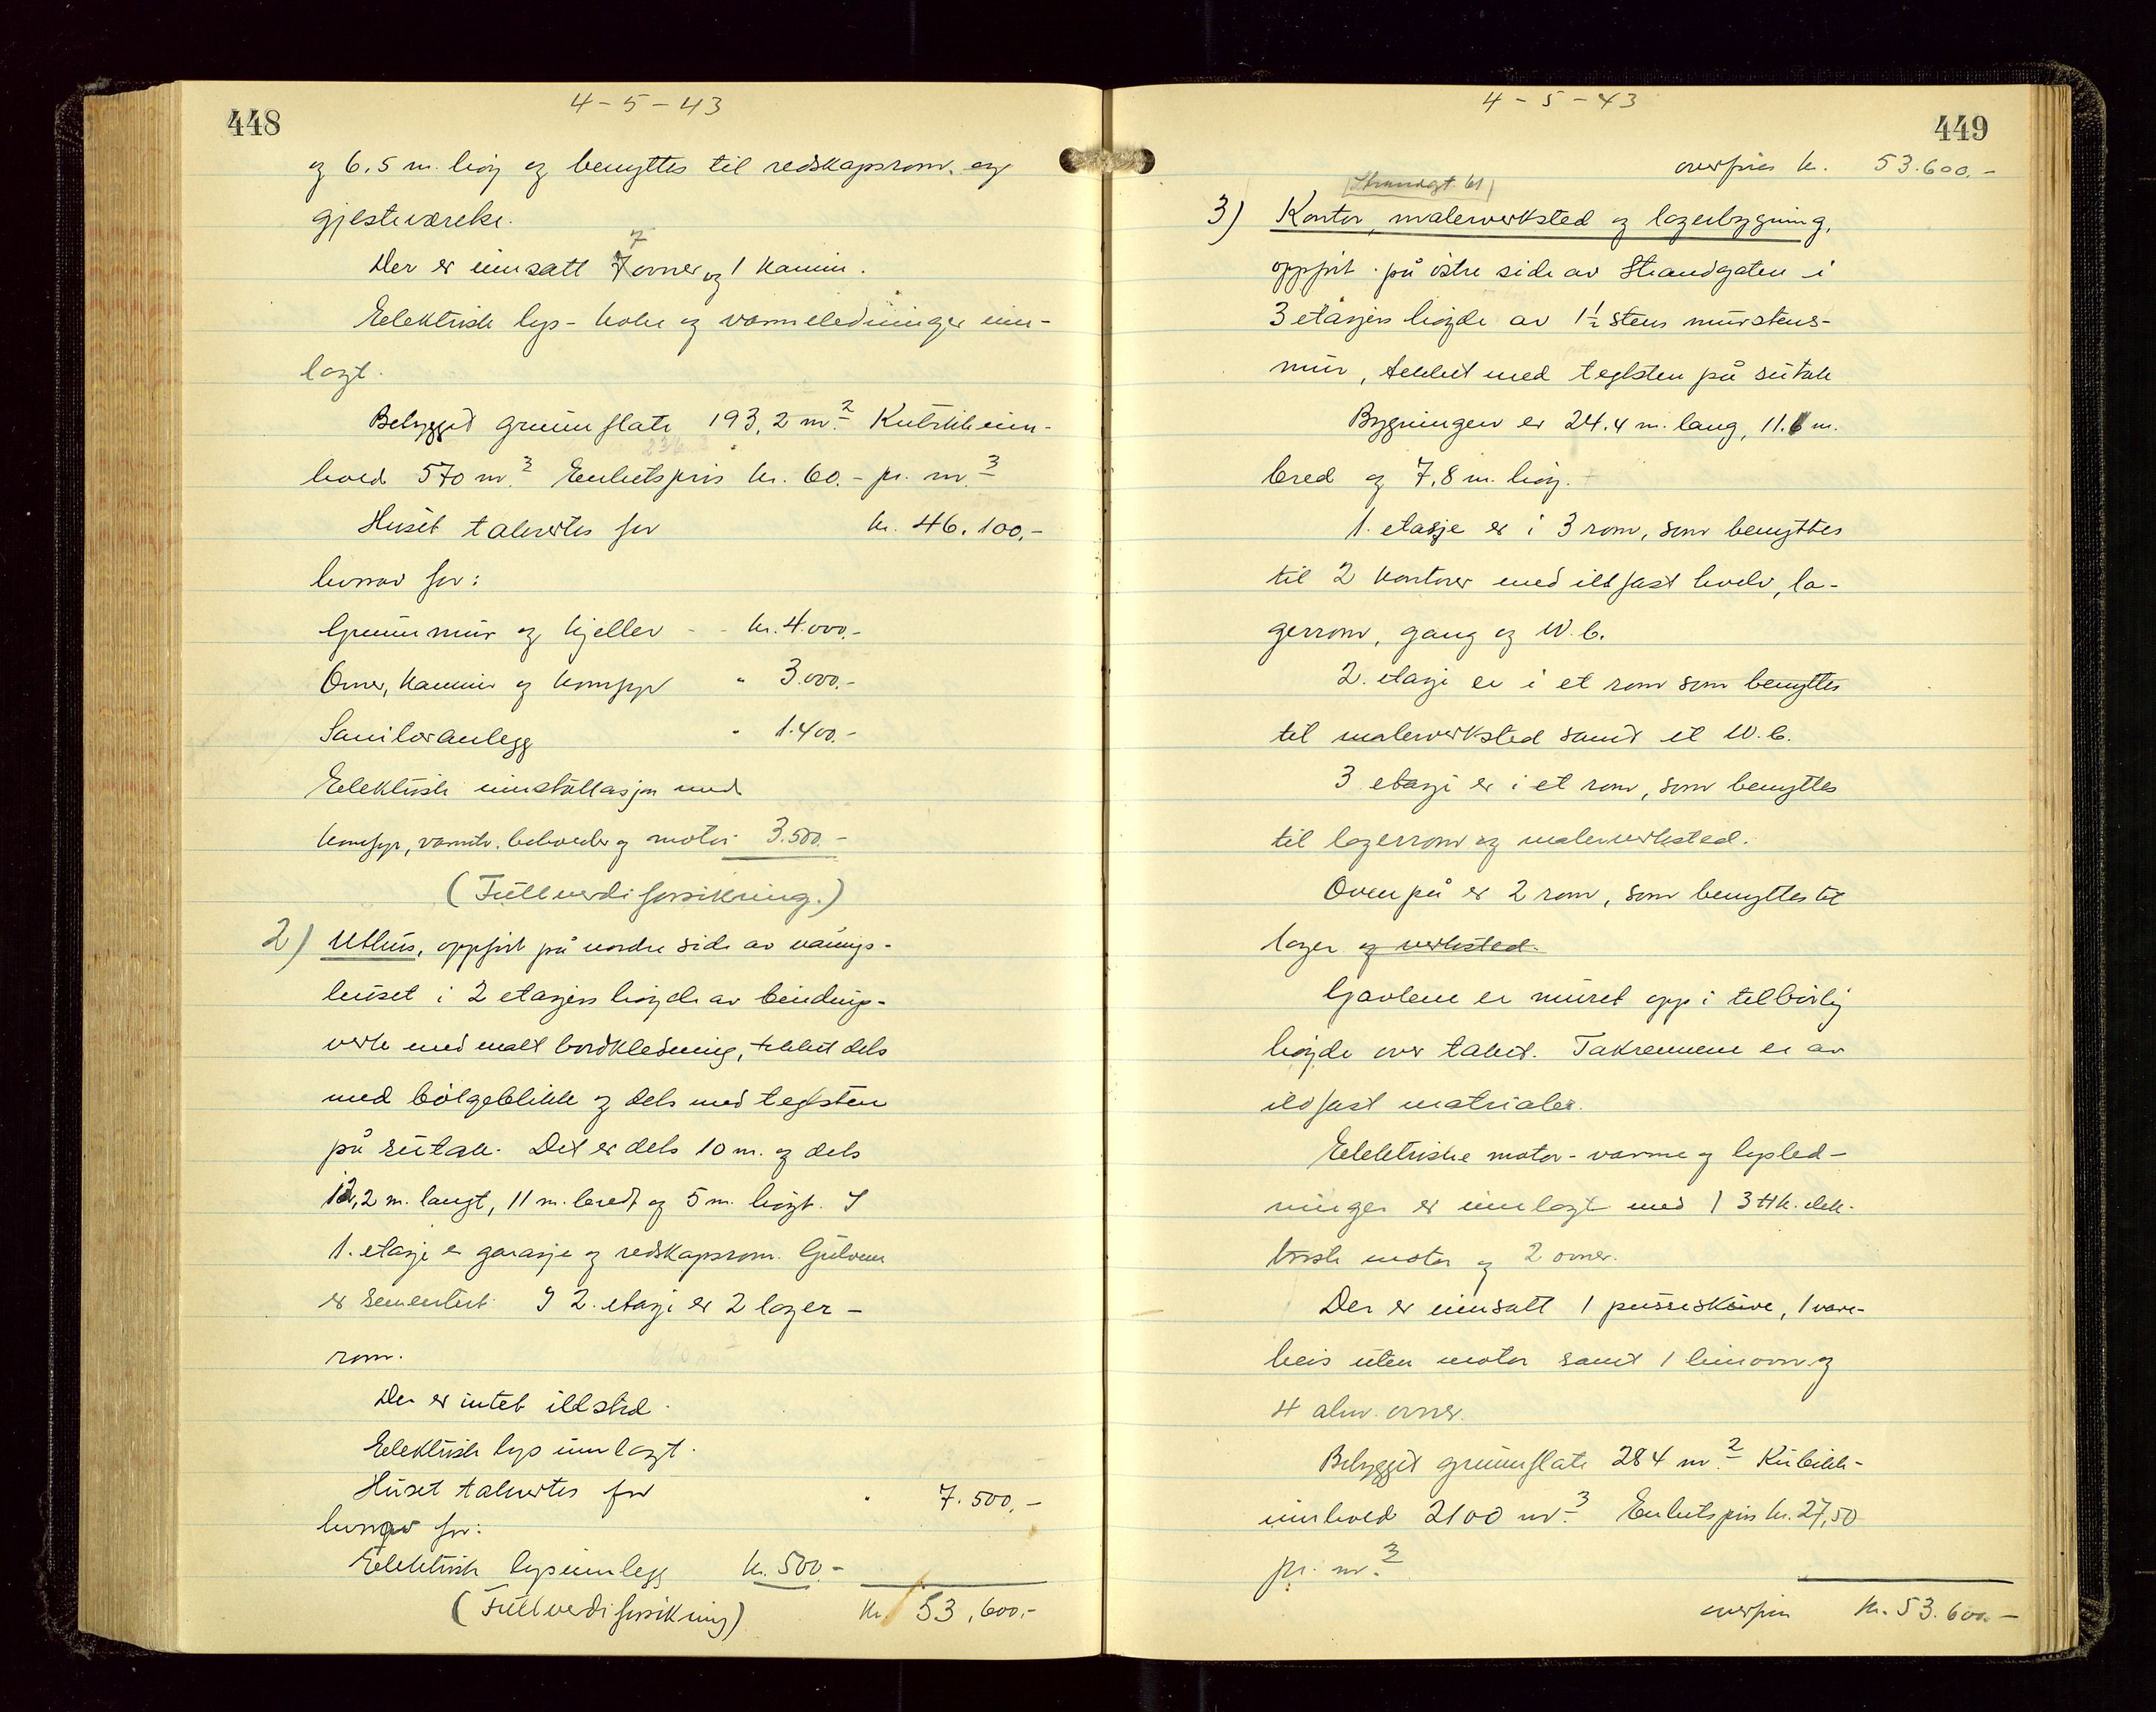 448
4-5-43
og 6,5 m. høy og benyttes til redskapsrom og
gjesteværelse.
7
Der er innsatt 7 ovner og 1 kamin.
Eelektrisk lys- koke og varmeledninger inn-
lagt.
Bebygget grunnflate 193,2 m.2 Kubikkinn-
hold 570 m.3 Enhetspris kr. 60.- pr. m.3
Huset takseres for kr. 46.100,-
hvorav for:
Grunnmur og kjeller - - kr. 4.000.-
Ovner, kamin og komfyr " 3.000.-
Sanitæranlegg " 1.400.-
Eelektrisk innstallasjon med
komfyr, varmtv. beholder og motor 3.500.-
(Fullverdiforsikring.)
2) Uthus, oppført på nordre side av vånings-
huset i 2 etasjers høyde av bindings-
verk med malt bordkledning, tekket dels
med bølgeblikk og dels med teglsten
på sutak. Det er dels 10 m. og dels
12,2 m. langt, 11 m. bredt og 5 m. høyt. I
1. etasje er garasje og redskapsrom. Gulvene
er sementert. I 2. etasje er 2 lager-
rom.
Der er intet ildsted.
Eelektrisk lys innlagt.
Huset takseres for " 7.500.-
hvorav for:
Eelektrisk lysinnlegg kr. 500.-
(Fullverdiforsikring) kr. 53,600.-
4-5-43
449
overføres kr. 53.600.-
(Strandgt. 61)
3) Kontor, malerverksted og lagerbygning,
oppført på østre side av Strandgaten i
3 etasjers høyde av 1 1/2 stens murstens-
mur, tekket med teglsten på sutak
Bygningen er 24.4 m. lang, 11.6 m.
bred og 7,8 m. høy.
1. etasje er i 3 rom, som benyttes
til 2 kontorer med ildfast hvelv, la-
gerrom, gang og W.C.
2. etasje er i et rom som benyttes
til malerverksted samt et W.C.
3 etasje er i et rom, som benyttes
til lagerrom og malerverksted.
Ovenpå er 2 rom, som benyttes til
lager og verksted.
Gavlene er muret opp i tilbørlig
høyde over taket. Takrennene er av
ildfast matrialer.
Eelektriske motor- varme og lysled-
ninger er innlagt med 1 3 HK. elek-
trisk motor og 2 ovner.
Der er innsatt 1 pusseskive, 1 vare-
heis uten motor samt 1 limovn og
4 alm. ovner.
Bebygget grunnflate 284 m.2 Kubikk-
innhold 2100 m.3 Enhetspris kr. 27,50
pr. m.3
overføres kr. 53.600.-